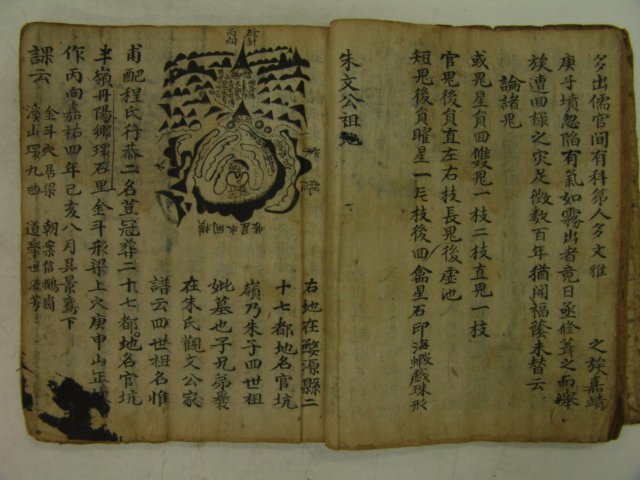 多出儒官间有科第人多文雅 之族嘉靖
庚子墳忽陷有氣如霧出者竟日亟修葺之而舉
族遭回祿之灾足徵数百年猶閙福蔭未替云
論諸鬼
或鬼星負回雙鬼一枝二枝直鬼一枝
官鬼後負直左右枝長鬼後虛池
短鬼後負曜星一左枝後回禽星石印海螺戲珠形
朱文公祖地
右地在婺源縣二
十七都地名官坑
嶺乃朱子四世祖
妣墓也子兄弟
在朱氏觀文公家
譜云四世祖名惟
甫配程氏行
二名荳冠葬二十七都地名官坑
半嶺丹陽鄉環石里金斗形梁上穴庚申山正
作丙向嘉祐四年己亥八月吴景鸞下
課云 金斗穴居梁 朝案信鵝崗
溪山環九曲 道學世流芳
丙向